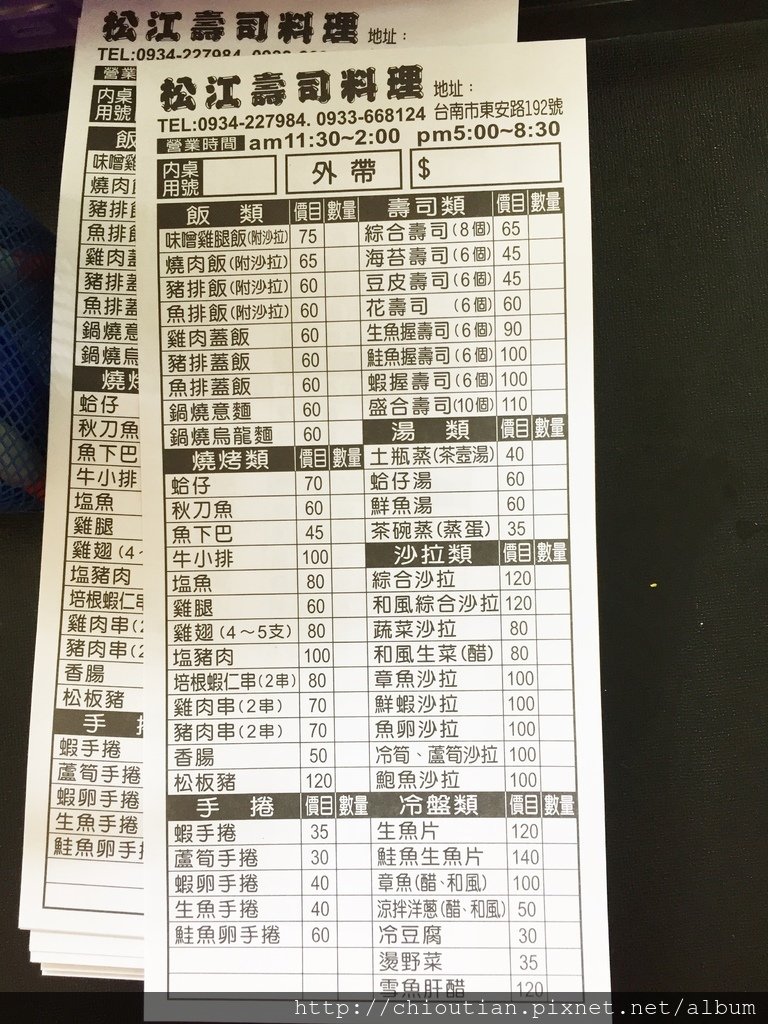 松江壽司料理 地址：
TEL:0934-227984. 0933-66
營業
內桌
用號
飯
味噌雞
燒肉飯
豬排飯
魚排飯
雞肉蓋
豬排蓋
魚排蓋
鍋燒意
鍋燒烏
燒烤
蛤仔
秋刀魚
魚下巴
牛小排
塩魚
雞腿
雞翅（4~
塩豬肉
培根蝦仁串
雞肉串(2
豬肉串(2
香腸
松板豬
手
蝦手捲
蘆筍手捲
蝦卵手捲
生魚手捲
鮭魚卵手
松江壽司料理 地址：
TEL:0934-227984. 0933-668124 台南市東安路192號
營業時間 am11:30~2:00 pm5:00~8:30
內桌
用號
外帶 $
飯 類 價目 數量
味噌雞腿飯(附沙拉) 75
燒肉飯(附沙拉) 65
豬排飯(附沙拉) 60
魚排飯(附沙拉) 60
雞肉蓋飯 60
豬排蓋飯 60
魚排蓋飯 60
鍋燒意麵 60
鍋燒烏龍麵 60
燒烤類 價目 數量
蛤仔 70
秋刀魚 60
魚下巴 45
牛小排 100
塩魚 80
雞腿 60
雞翅（4～5支） 80
塩豬肉 100
培根蝦仁串(2串) 80
雞肉串(2串) 70
豬肉串(2串) 70
香腸 50
松板豬 120
手 捲 價目 數量
蝦手捲 35
蘆筍手捲 30
蝦卵手捲 40
生魚手捲 40
鮭魚卵手捲 60
壽司類 價目 數量
綜合壽司(8個) 65
海苔壽司(6個) 45
豆皮壽司(6個) 45
花壽司 (6個) 60
生魚握壽司(6個) 90
鮭魚握壽司(6個) 100
蝦握壽司(6個) 100
盛合壽司(10個) 110
湯 類 價目 數量
土瓶蒸(茶壺湯) 40
蛤仔湯 60
鮮魚湯 60
茶碗蒸(蒸蛋) 35
沙拉類 價目 數量
綜合沙拉 120
和風綜合沙拉 120
蔬菜沙拉 80
和風生菜(醋) 80
章魚沙拉 100
鮮蝦沙拉 100
魚卵沙拉 100
冷筍、蘆筍沙拉 100
鮑魚沙拉 100
冷盤類 價目 數量
生魚片 120
鮭魚生魚片 140
章魚(醋、和風) 100
涼拌洋蔥(醋、和風) 50
冷豆腐 30
燙野菜 35
雪魚肝醋 120
http://chioutian.pixnet.net/album